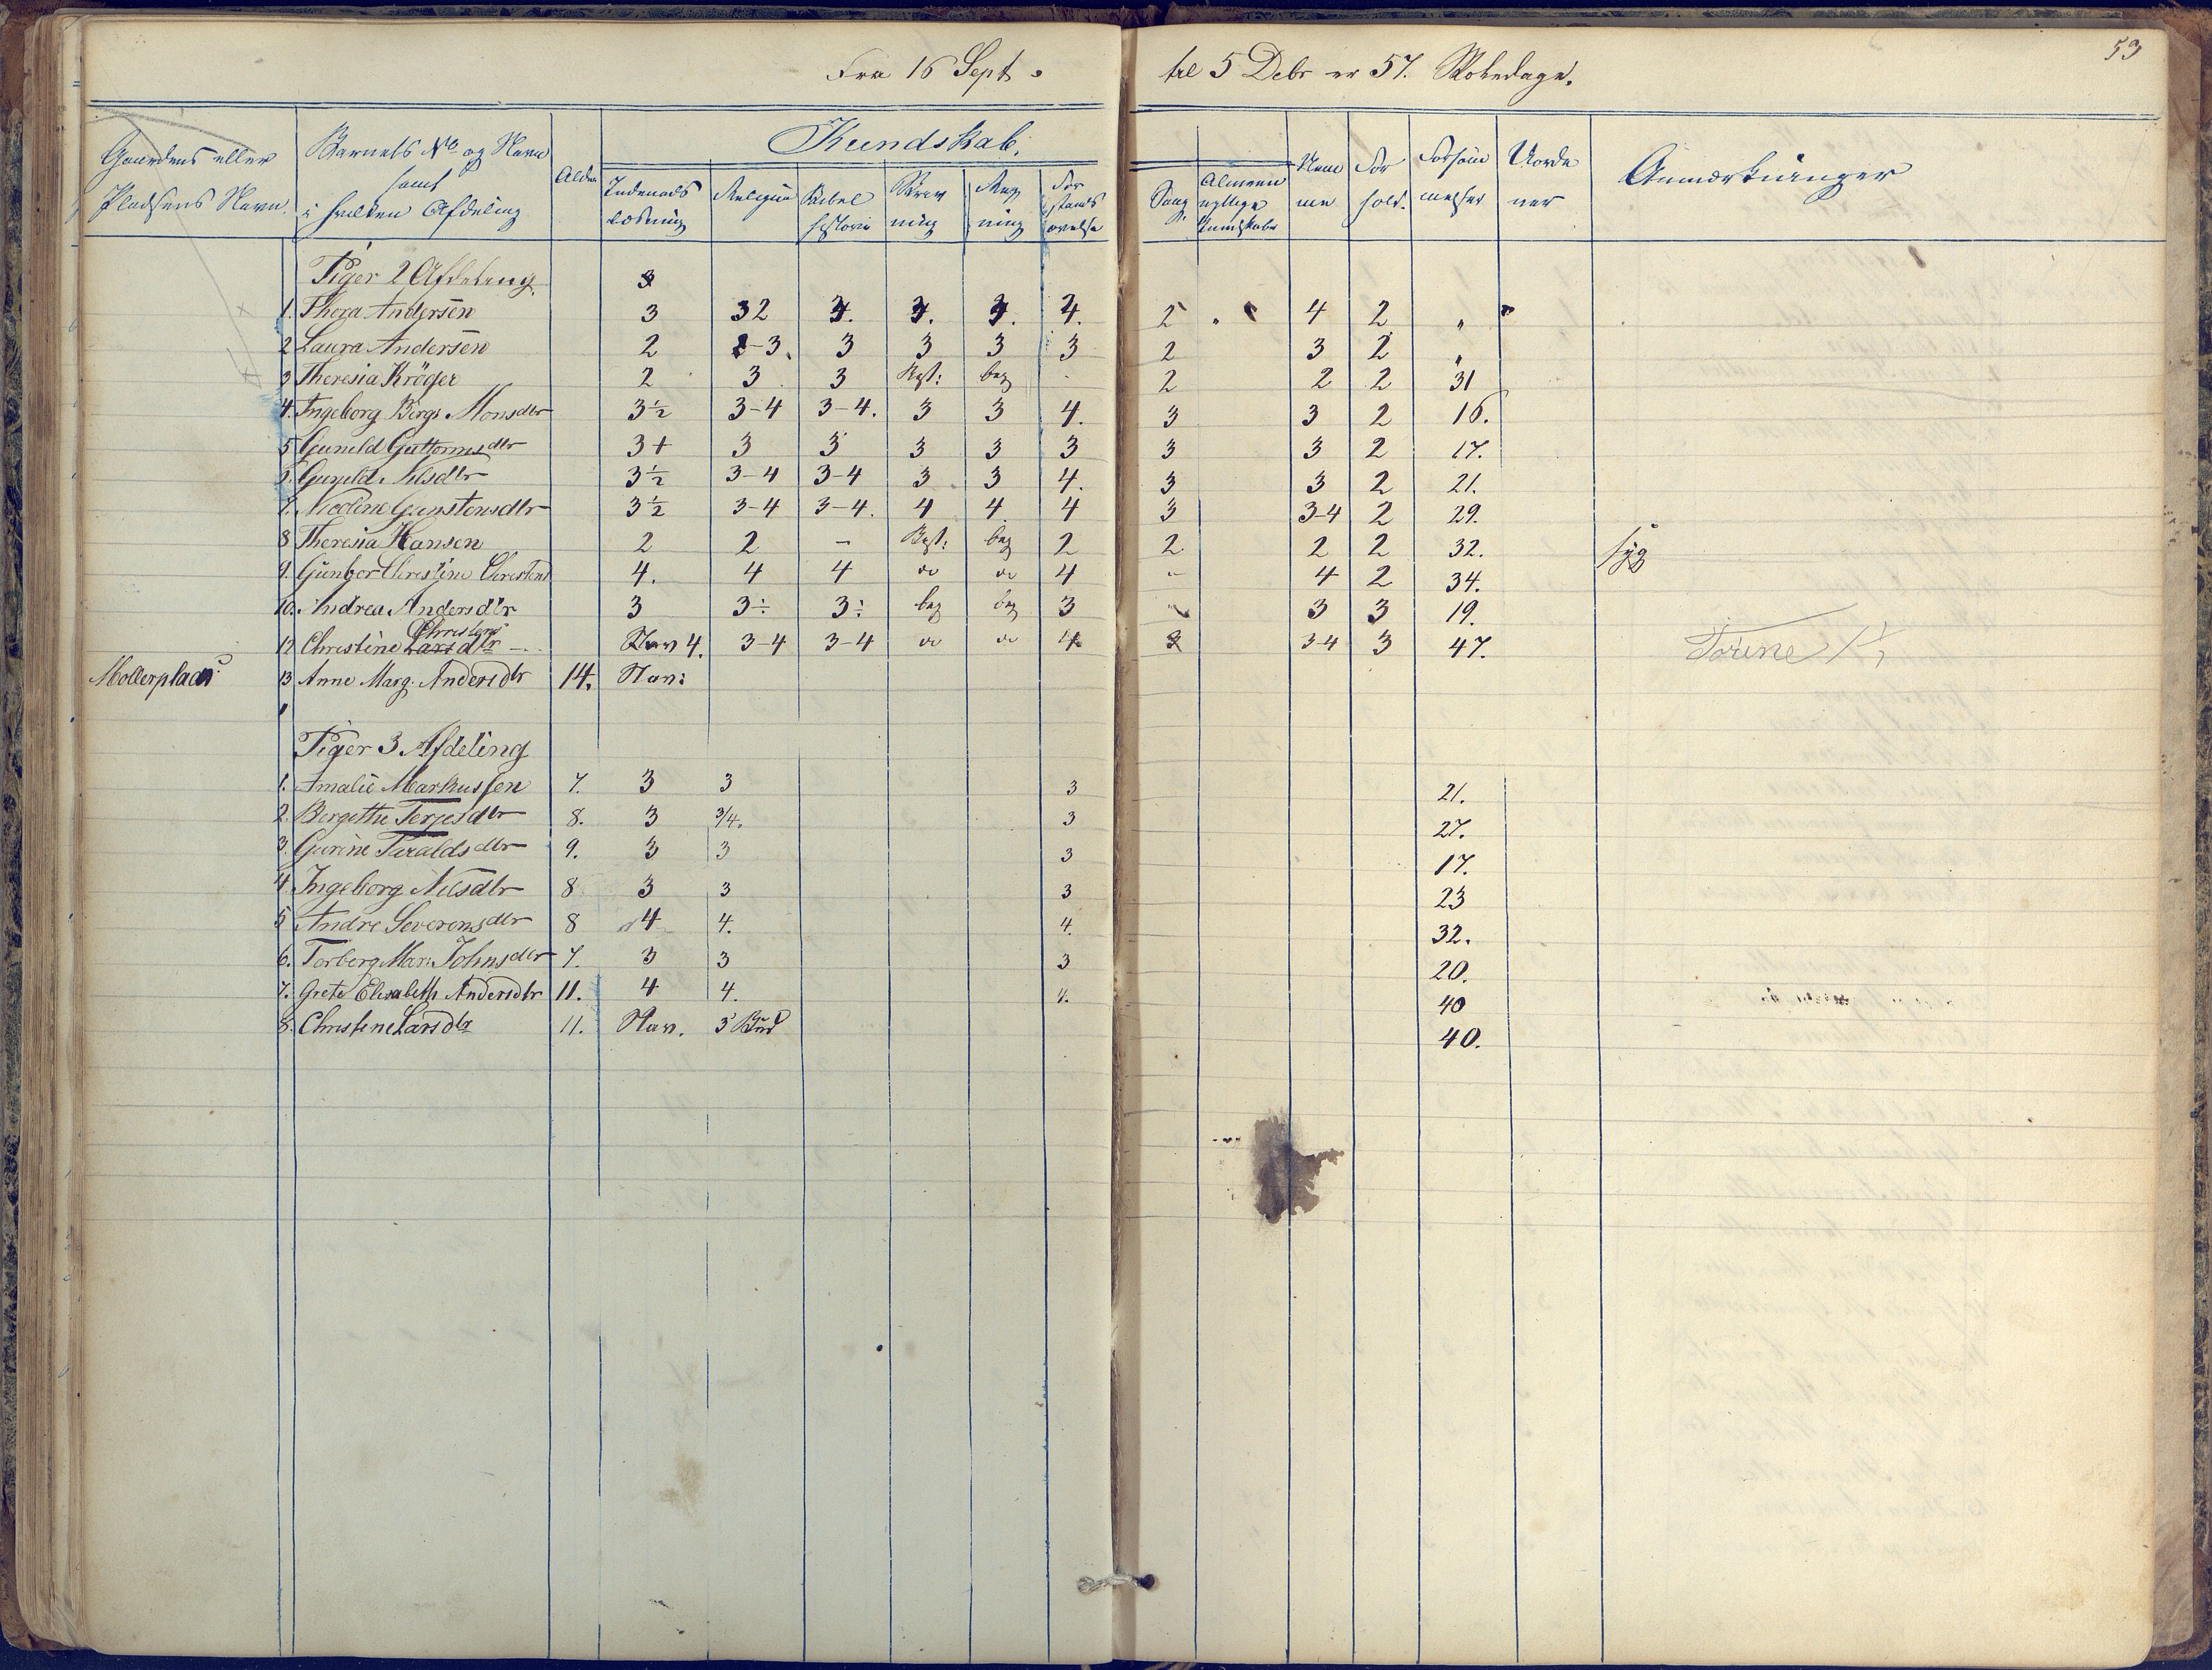 53
Fra 16 Sept. til 5 Debr er 57. Skoledage.
Gaardens eller Pladsens Navn. Barnets No og Navn samt i hvilken Afdeling Alder Kundskab. Indenads læsning Religion Bibel historie Skriv ning Reg ning For stands øvelse Sang. Almeen nyttige Kundskaber Nem me For hold. Forsøm melser Vorde ner Anmærkninger
Piger 2 Afdeling 3
1. Thora Andersen 3 32 4. 4. 4. 4. 2 " 4 2 "
2 Laura Andersen 2 2-3. 3 3 3 3 2 3 2 "
3 Theresia Kröger 2 3 3 Bgst: beg 2 2 2 31
4. Ingeborg Birgt Monsdtr 3½ 3-4 3-4. 3 3 4. 3 3 2 16.
5 Gunild Guttormsdtr 3+ 3 3 3 3 3 3 3 2 17.
6. Gunild Nilsdtr 3½ 3-4 3-4 3 3 4. 3 3 2 21.
7. Nicoline Gunstensdtr 3½ 3-4 3-4. 4 4 4 3 3-4 2 29.
8 Theresia Hansen 2 2 – Bgst: beg 2 2 2 2 32. syg
9. Gunbor Christine Christens 4. 4 4 do do 4 – 4 2 34.
10. Andrea Andersdtr 3 3÷ 3÷ beg beg 3 3 3 19.
Christens
12 Christine Larsdtr - Stav 4. 3-4 3-4 do do 4 3 3-4 3 47. Torine
Mollerplads 13 Anne Marg: Andersdtr 14. Stav:
Piger 3. Afdeling
1. Amalie Markussen 7. 3 3 3 21.
2. Bergitthe Terjesdtr 8. 3 3/4. 3 27.
3. Gurine Taraldsdtr 9. 3 3 3 17.
4. Ingeborg Nilsdtr 8 3 3 3 23
5 Andre Severensdtr 8 4 4. 4. 32.
6. Torberg Mar: Johnsdtr 7. 3 3 3 20.
7. Grete Elisabeth Andersdtr 11. 4 4. 4. 40
8. Christine Larsdtr 11. Stav. 3 Bud 40.